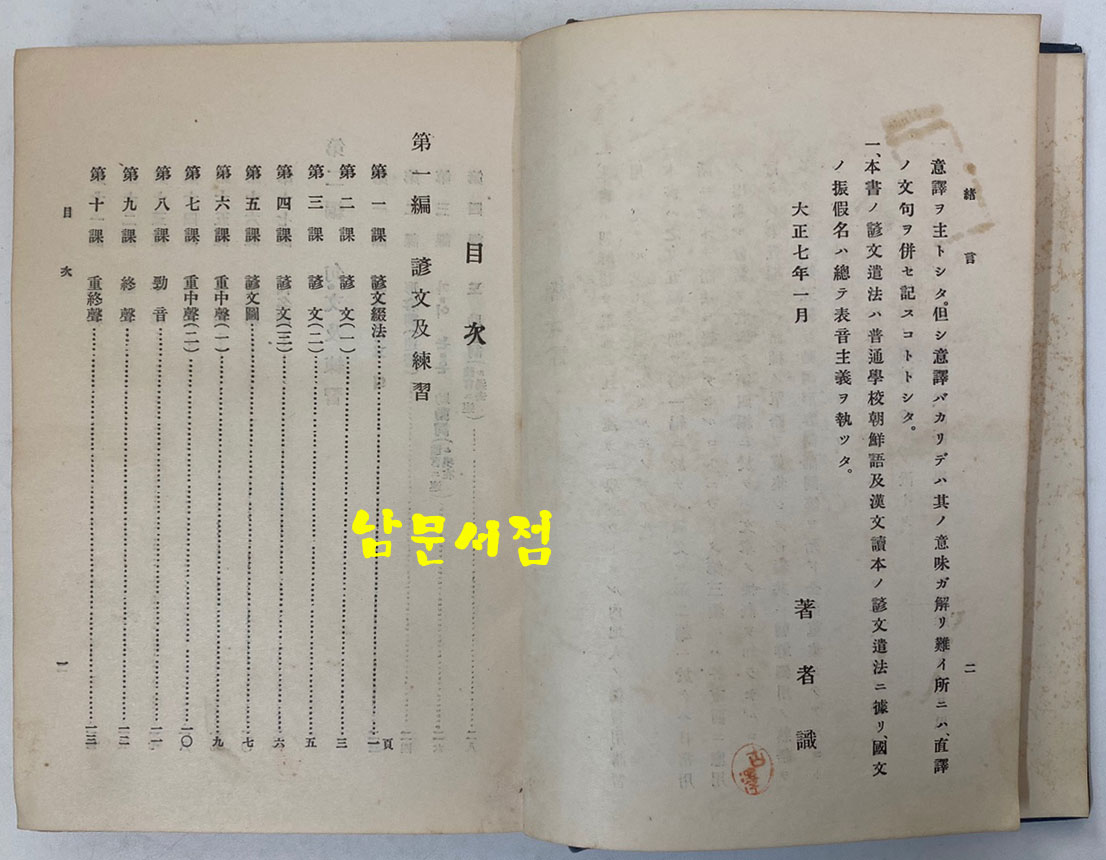 緖言
二
一、意譯ヲ主トシタ。但シ意譯バカリデハ其ノ意味ガ解リ難イ所ニハ、直譯
ノ文句ヲ併セ記スコトトシタ。
一、本書ノ諺文遣法ハ普通學校朝鮮語及漢文讀本ノ諺文遣法ニ據リ、國文
ノ振假名ハ總テ表音主義ヲ執ツタ。
大正七年一月
著者識
目次
第一編 諺文及練習
第一課 諺文綴法……一頁
第二課 諺文(一)……三
第三課 諺文(二)……五
第四課 諺文(三)……六
第五課 諺文圖……七
第六課 重中聲(一)……九
第七課 重中聲(二)……一〇
第八課 勁音……一一
第九課 終聲……一二
第十一課 重終聲……一三
目次
一
남문서점